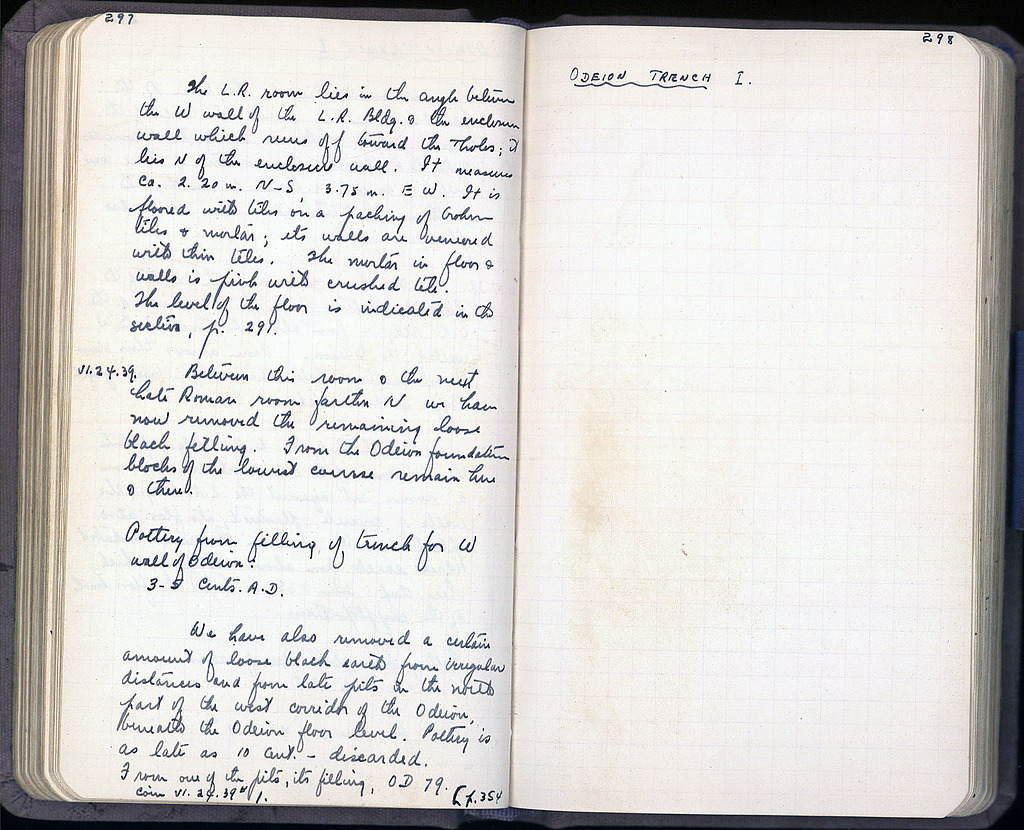 297
The L.R. room lies in the angle between
the W wall of the L.R. Bldg. & the enclosure
wall which runs off toward the Tholos; it
lies N of the enclosure wall. It measures
ca. 2.20 m. N-S, 3.75 m. E W. It is
floored with tiles on a packing of broken
tiles & mortar; its walls are veneered
with thin tiles. The mortar in floor &
walls is pink with crushed tile.
The level of the floor is indicated in the
section, p. 291.
VI.24.39. Between this room & the next
Late Roman room farther N we have
now removed the remaining loose
black filling. From the Odeion foundation
blocks of the lowest course remain here
& there.
Pottery from filling of trench for W
wall of Odeion:
3-5 Cents. A.D.
We have also removed a certain
amount of loose black earth from irregular
distances and from late pits in the north
part of the west corridor of the Odeion,
beneath the Odeion floor level. Pottery is
as late as 10 Cent. - discarded.
From one of the pits, its filling, OD 79.
Coin VI.24.39 # 1. [p.354
298
ODEION TRENCH I.